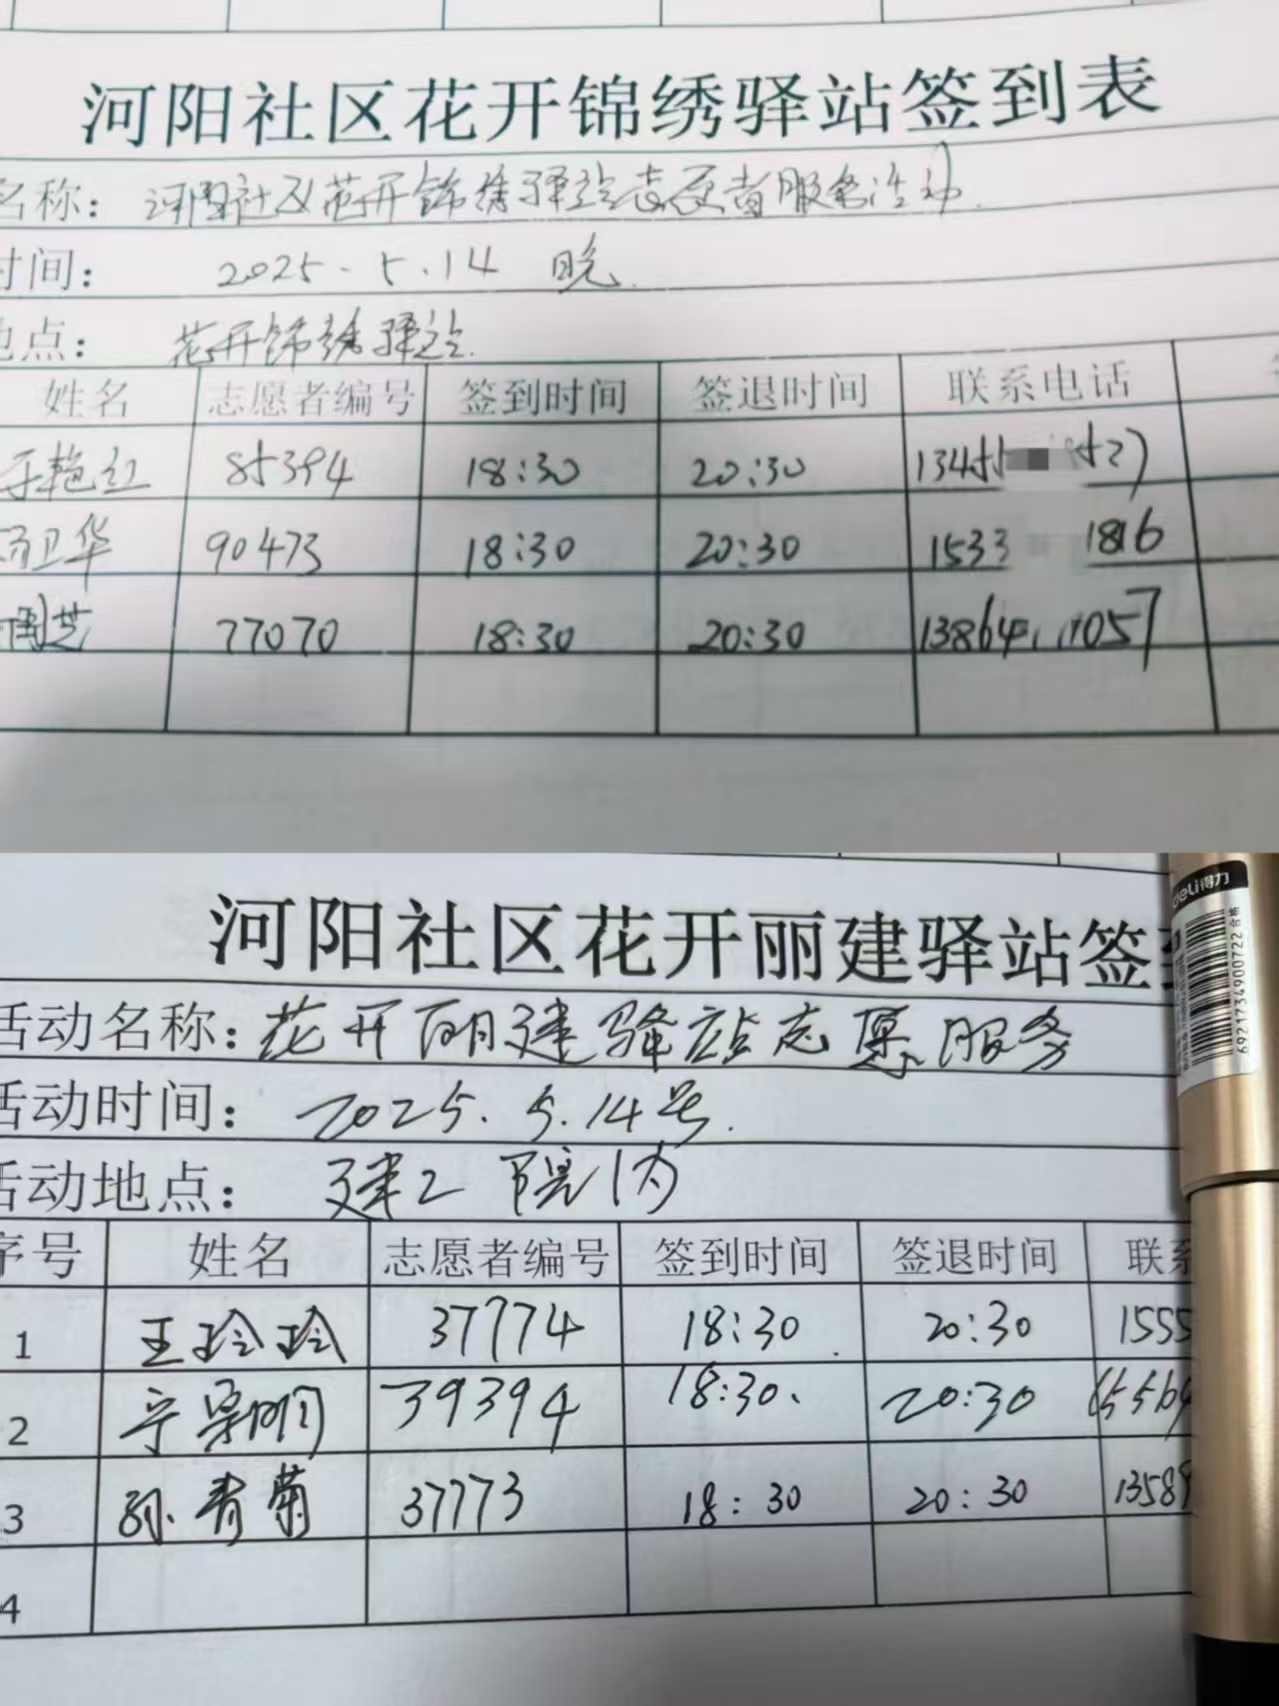 河阳社区花开锦绣驿站签到表
名称：河阳社区花开锦绣驿站志愿者服务活动
时间： 2025.5.14 晚
地点： 花开锦绣驿站
姓名 志愿者编号 签到时间 签退时间 联系电话
于艳红 85394 18:30 20:30 1345
卫华 90473 18:30 20:30 1533 1816
芝 77070 18:30 20:30 13864 1057
河阳社区花开丽建驿站签
活动名称：花开丽建驿站志愿服务
活动时间： 2025.5.14号.
活动地点： 建工院内
序号 姓名 志愿者编号 签到时间 签退时间 联系
1 王玲玲 37774 18:30 20:30 1555
2 39394 18:30 20:30 15564
3 孙青菊 37773 18:30 20:30 13589
4
deli得力
6921734900722
合格